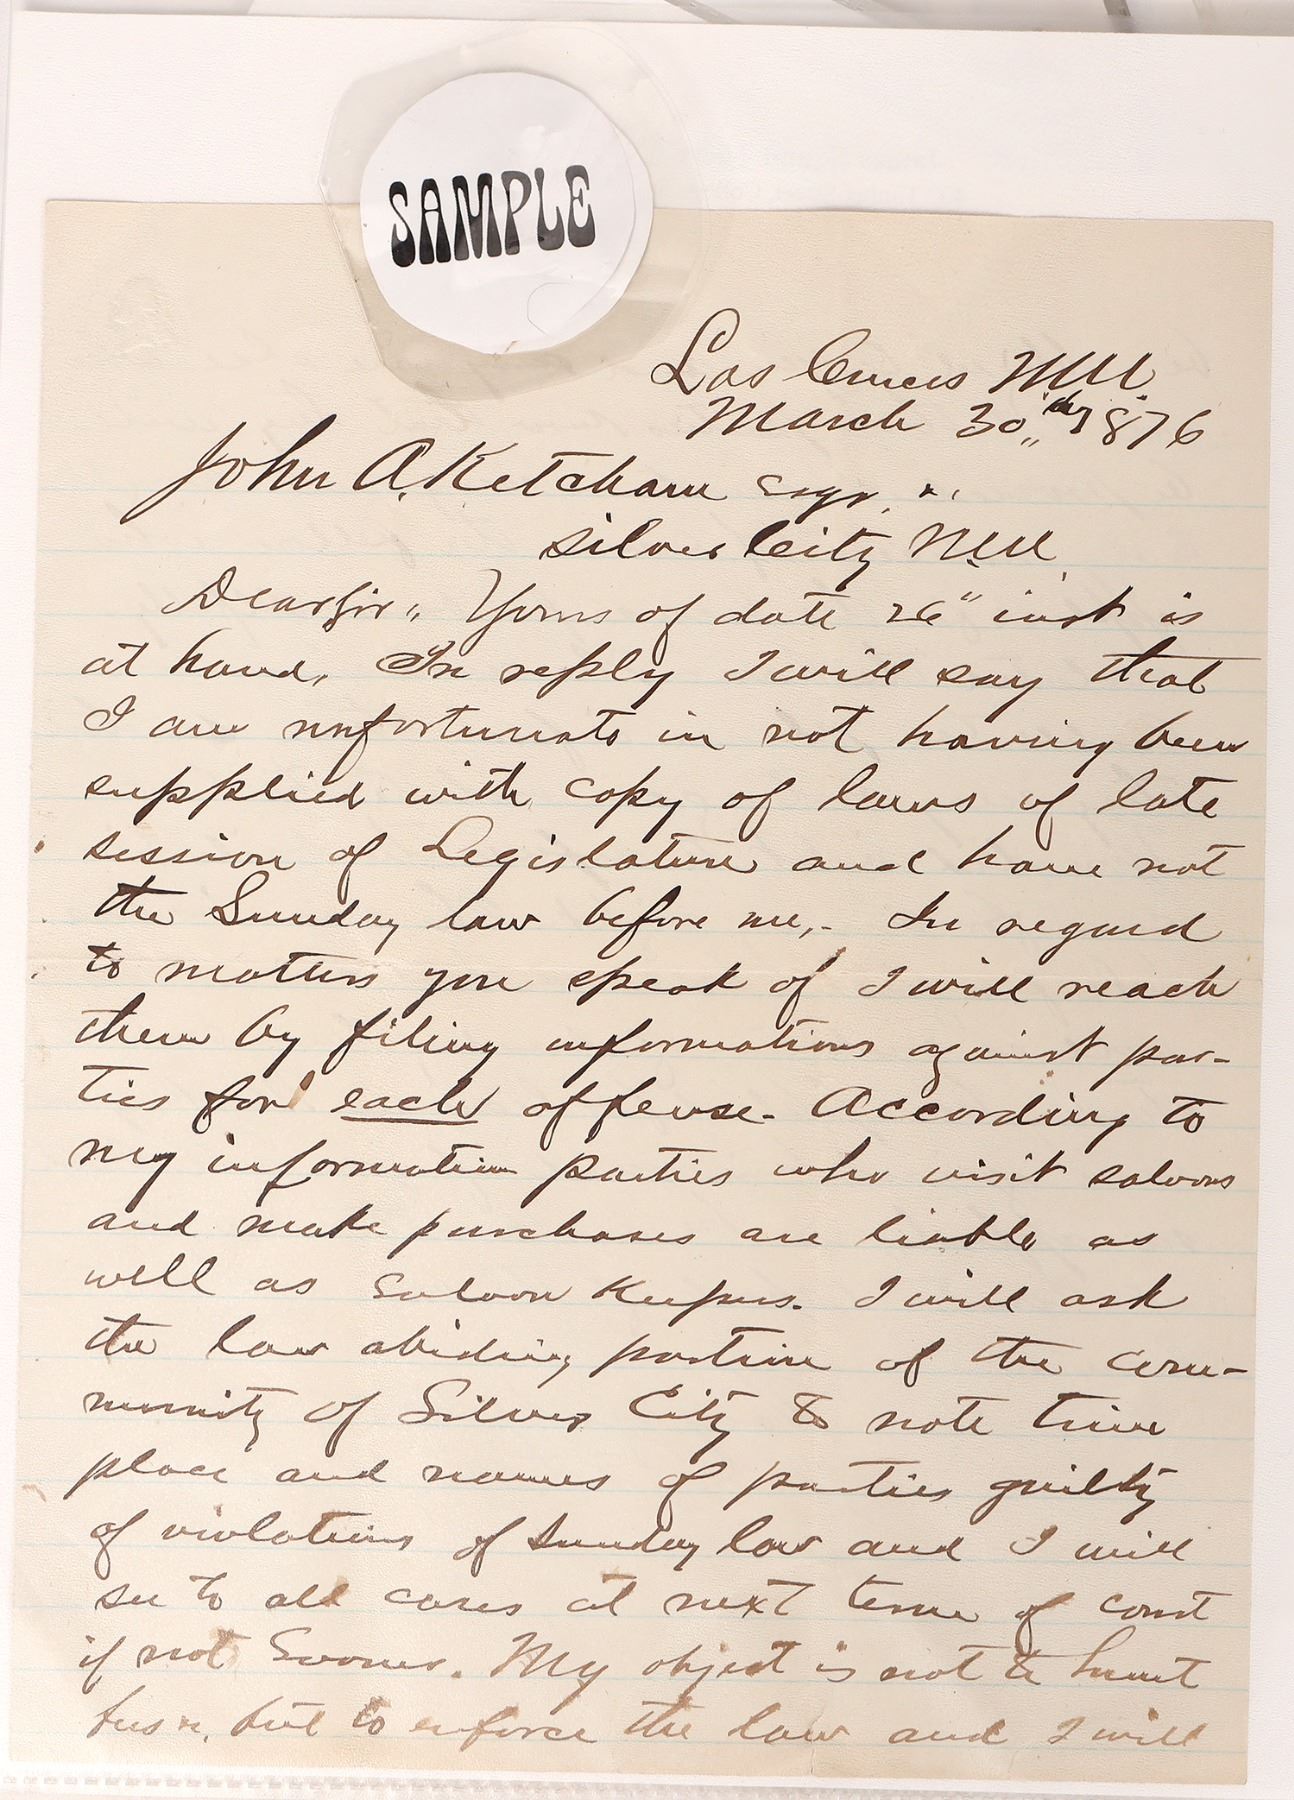 SAMPLE
Las Cruces N.M.
March 30th, 1876
John A. Ketcham Esqr.
Silver City N.M.
Dear Sir, Yours of date 26" inst is
at hand. In reply I will say that
I am unfortunate in not having been
supplied with copy of laws of late
session of Legislature and have not
the Sunday law before me,. In regard
to matters you speak of I will reach
them by filing informations against par-
ties for each offense. According to
my information parties who visit saloons
and make purchases are liable as
well as saloon Keepers. I will ask
the law abiding portion of the com-
munity of Silver City to note time
place and names of parties guilty
of violations of Sunday law and I will
see to all cases at next term of court
if not Sooner. My object is not to hunt
but to enforce the law and I will